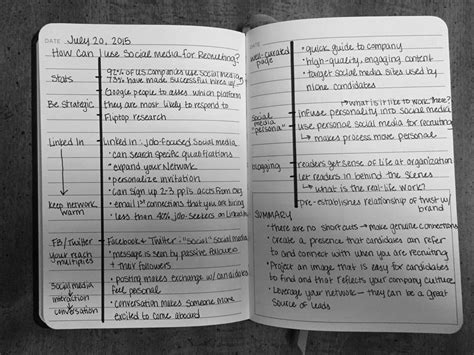 DATE July 20, 2015
How Can I use Social media for Recruiting?
Stats
92% of US companies use social media
73% have made successful hires w/
Be Strategic
Google people to asses which platform
they are most likely to respond to
Fliptop research
Linked In
Linked in: Job-focused Social media
• can search specific qualifications
• expand your Network
• personalize invitation
• can sign up 2-3 ppl's accts from org
keep network
warm
• email 1° connections that you are hiring
• less than 40% job-seekers on LinkedIn
FB/Twitter
Your reach
multiplies
Facebook & Twitter - "Social" social media
• message is seen by passive followers
+ their followers
• posting makes exchange w/ candidate
feel personal
Social media
interaction =
conversation
• conversation makes someone more
excited to come aboard
DATE
well-curated
page
• quick guide to company
• high-quality, engaging content
• target social media sites used by
niche candidates
→ what is it like to work there?
Social
media
"persona"
infuse personality into social media
use personal social media for recruiting
→ makes process more personal
blogging
readers get sense of life at organization
let readers in behind the scenes
→ what is the real-life work?
pre-establishes relationship of trust w/
brand
SUMMARY
• there are no short cuts → make genuine connections
• Create a presence that candidates can refer
to and connect with when you are recruiting
• Project an image that is easy for candidates
to find and that reflects your company culture
• Leverage your network – they can be a great
Source of leads